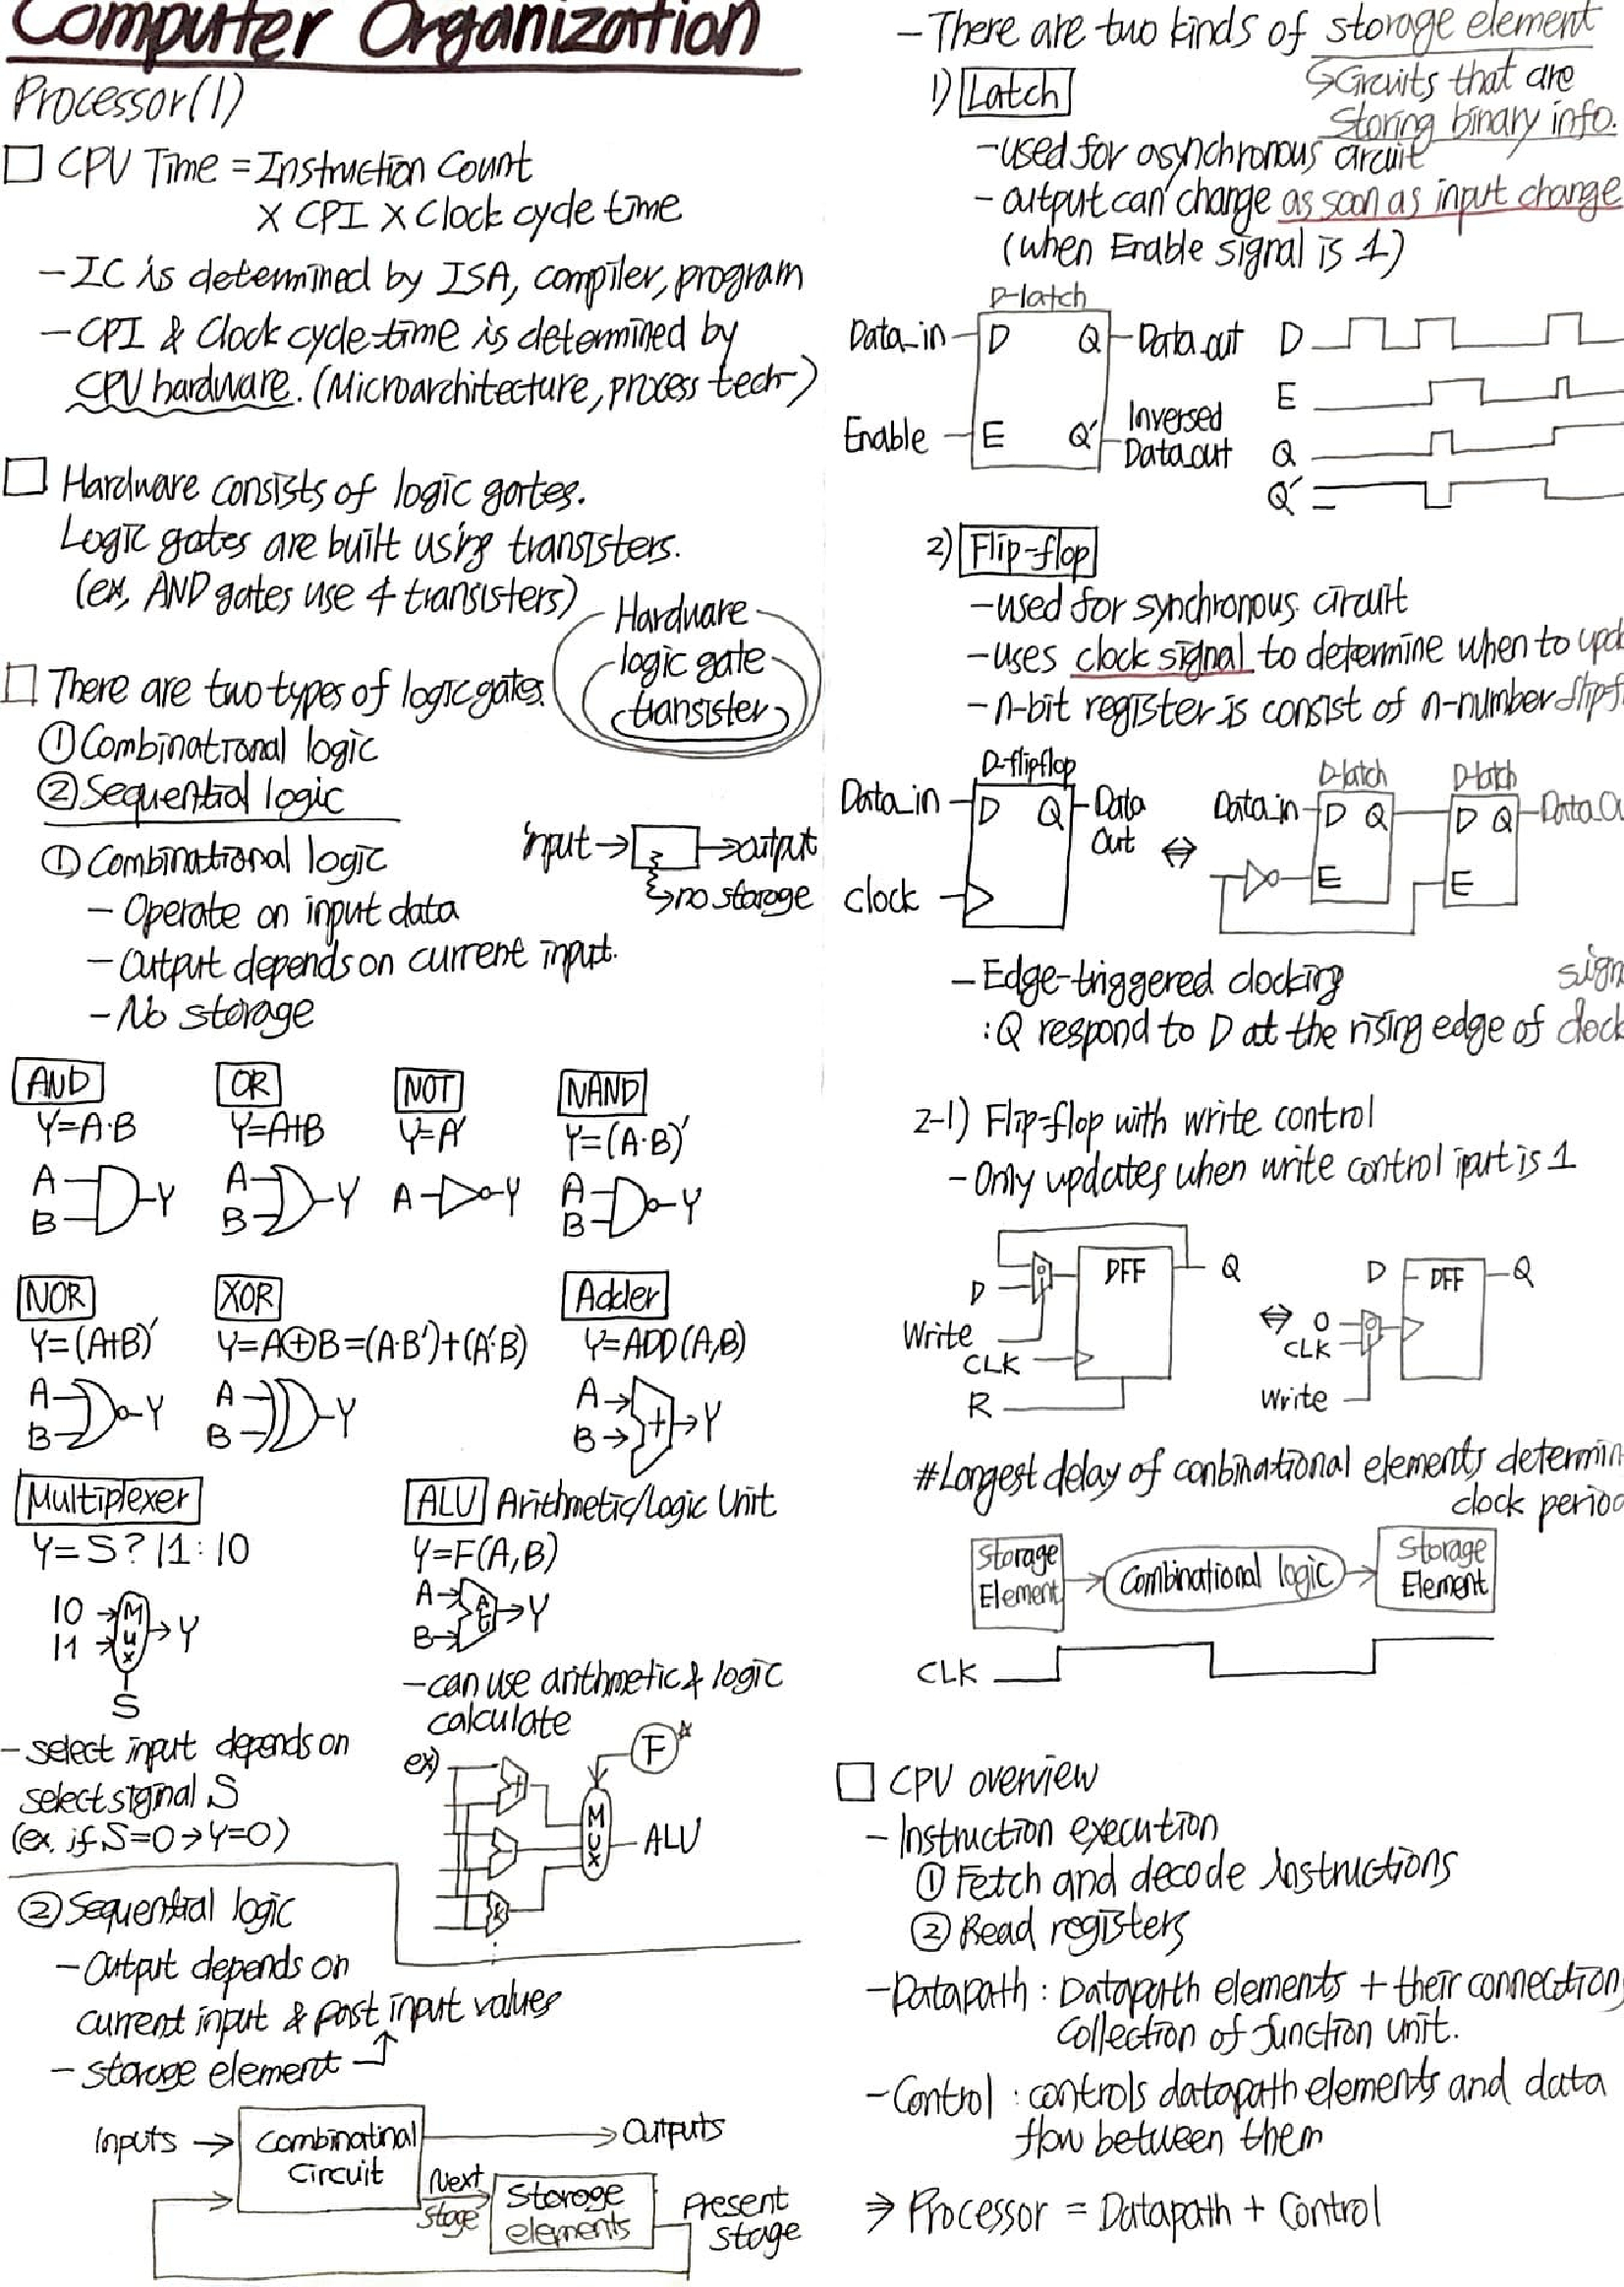 Computer Organization
Processor(1)
□ CPU Time = Instruction Count
X CPI X Clock cycle time
- IC is determined by ISA, compiler, program
- CPI & Clock cycle time is determined by
CPU hardware. (Microarchitecture, process tech-)
□ Hardware consists of logic gates.
Logic gates are built using transisters.
(ex, AND gates use 4 transisters)
Hardware
logic gate
transister
□ There are two types of logic gates.
① Combinational logic
② Sequential logic
① Combinational logic
- Operate on input data
- Output depends on current input.
- No storage
input → → output
↳ no storage
AND
Y=A·B
A
B
Y
OR
Y=A+B
A
B
Y
NOT
Y=A'
A
Y
NAND
Y=(A·B)'
A
B
Y
NOR
Y=(A+B)'
A
B
Y
XOR
Y=A⊕B=(A·B')+(A'·B)
A
B
Y
Adder
Y=ADD(A,B)
A
B
+
Y
Multiplexer
Y=S? I1 : I0
I0
I1
Mux
Y
S
- select input depends on
select signal S
(ex. if S=0 → Y=0)
ALU Arithmetic/Logic Unit
Y=F(A,B)
A
B
ALU
Y
- can use arithmetic & logic
calculate
ex)
F*
+
-
&
MUX
ALU
② Sequential logic
- Output depends on
current input & past input values
- storage element
Inputs →
Combinatinal
Circuit
→ Outputs
Next
stage
Storage
elements
Present
stage
- There are two kinds of storage element
↳ Circuits that are
storing binary info.
1) Latch
- used for asynchronous circuit
- output can change as soon as input change
(when Enable signal is 1)
D-latch
Data_in
D
Q
Data_out
Enable
E
Q'
Inversed
Data_out
D
E
Q
Q'
2) Flip-flop
- used for synchronous circuit
- uses clock signal to determine when to upd
- n-bit register is consist of n-number flip-f
D-flipflop
Data_in
D
Q
Data
Out
clock
⇔
D-latch
Data_in
D
Q
E
D-latch
D
Q
E
Data_Ou
- Edge-triggered clocking
sign
: Q respond to D at the rising edge of clock
2-1) Flip-flop with write control
- Only updates when write control iput is 1
D
Write
CLK
R
DFF
Q
⇔
D
0
CLK
Write
DFF
Q
#Longest delay of conbinational elements determin
clock perio
Storage
Element
Combinational logic
Storage
Element
CLK
□ CPU overview
- Instruction execution
① Fetch and decode instructions
② Read registers
- Datapath : Datapath elements + their connection
collection of function unit.
- Control : controls datapath elements and data
flow between them
⇒ Processor = Datapath + Control